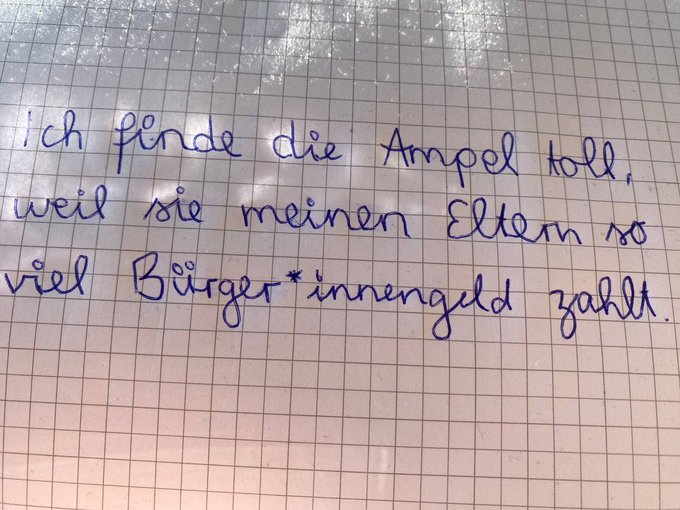 Ich finde die Ampel toll,
weil sie meinen Eltern so
viel Bürger*innengeld zahlt.